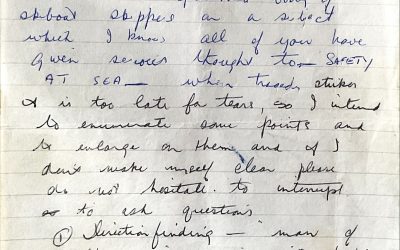 skiboat skippers on a subject
which I know all of you have
given serious thought to — SAFETY
AT SEA — when tragedy strikes
it is too late for tears, so I intend
to enumerate some points and
to enlarge on them and if I
don't make myself clear please
do not hesitate to interrupt
or to ask questions
① Direction finding — man of